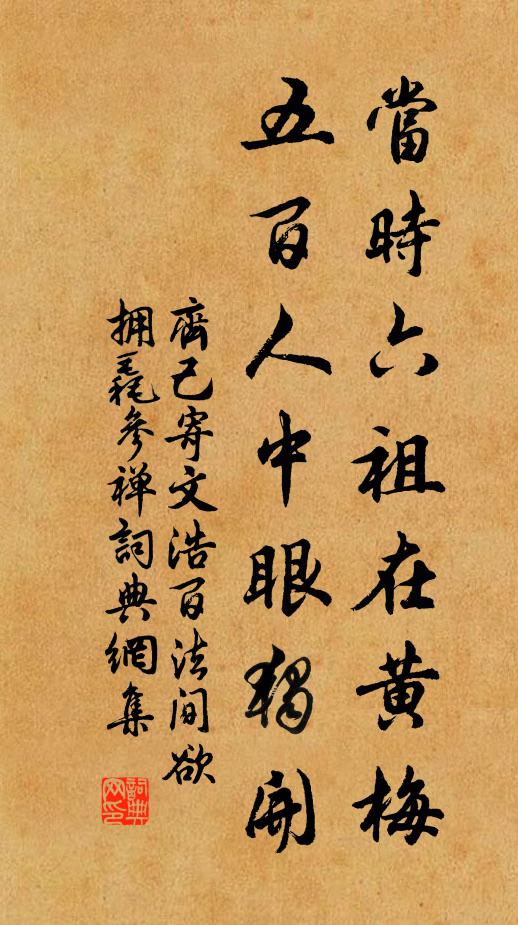 當時六祖在黃梅
五百人中眼獨開
齊己寄文浩百法間欲
拥毳參禅詞典網集
詞典网印